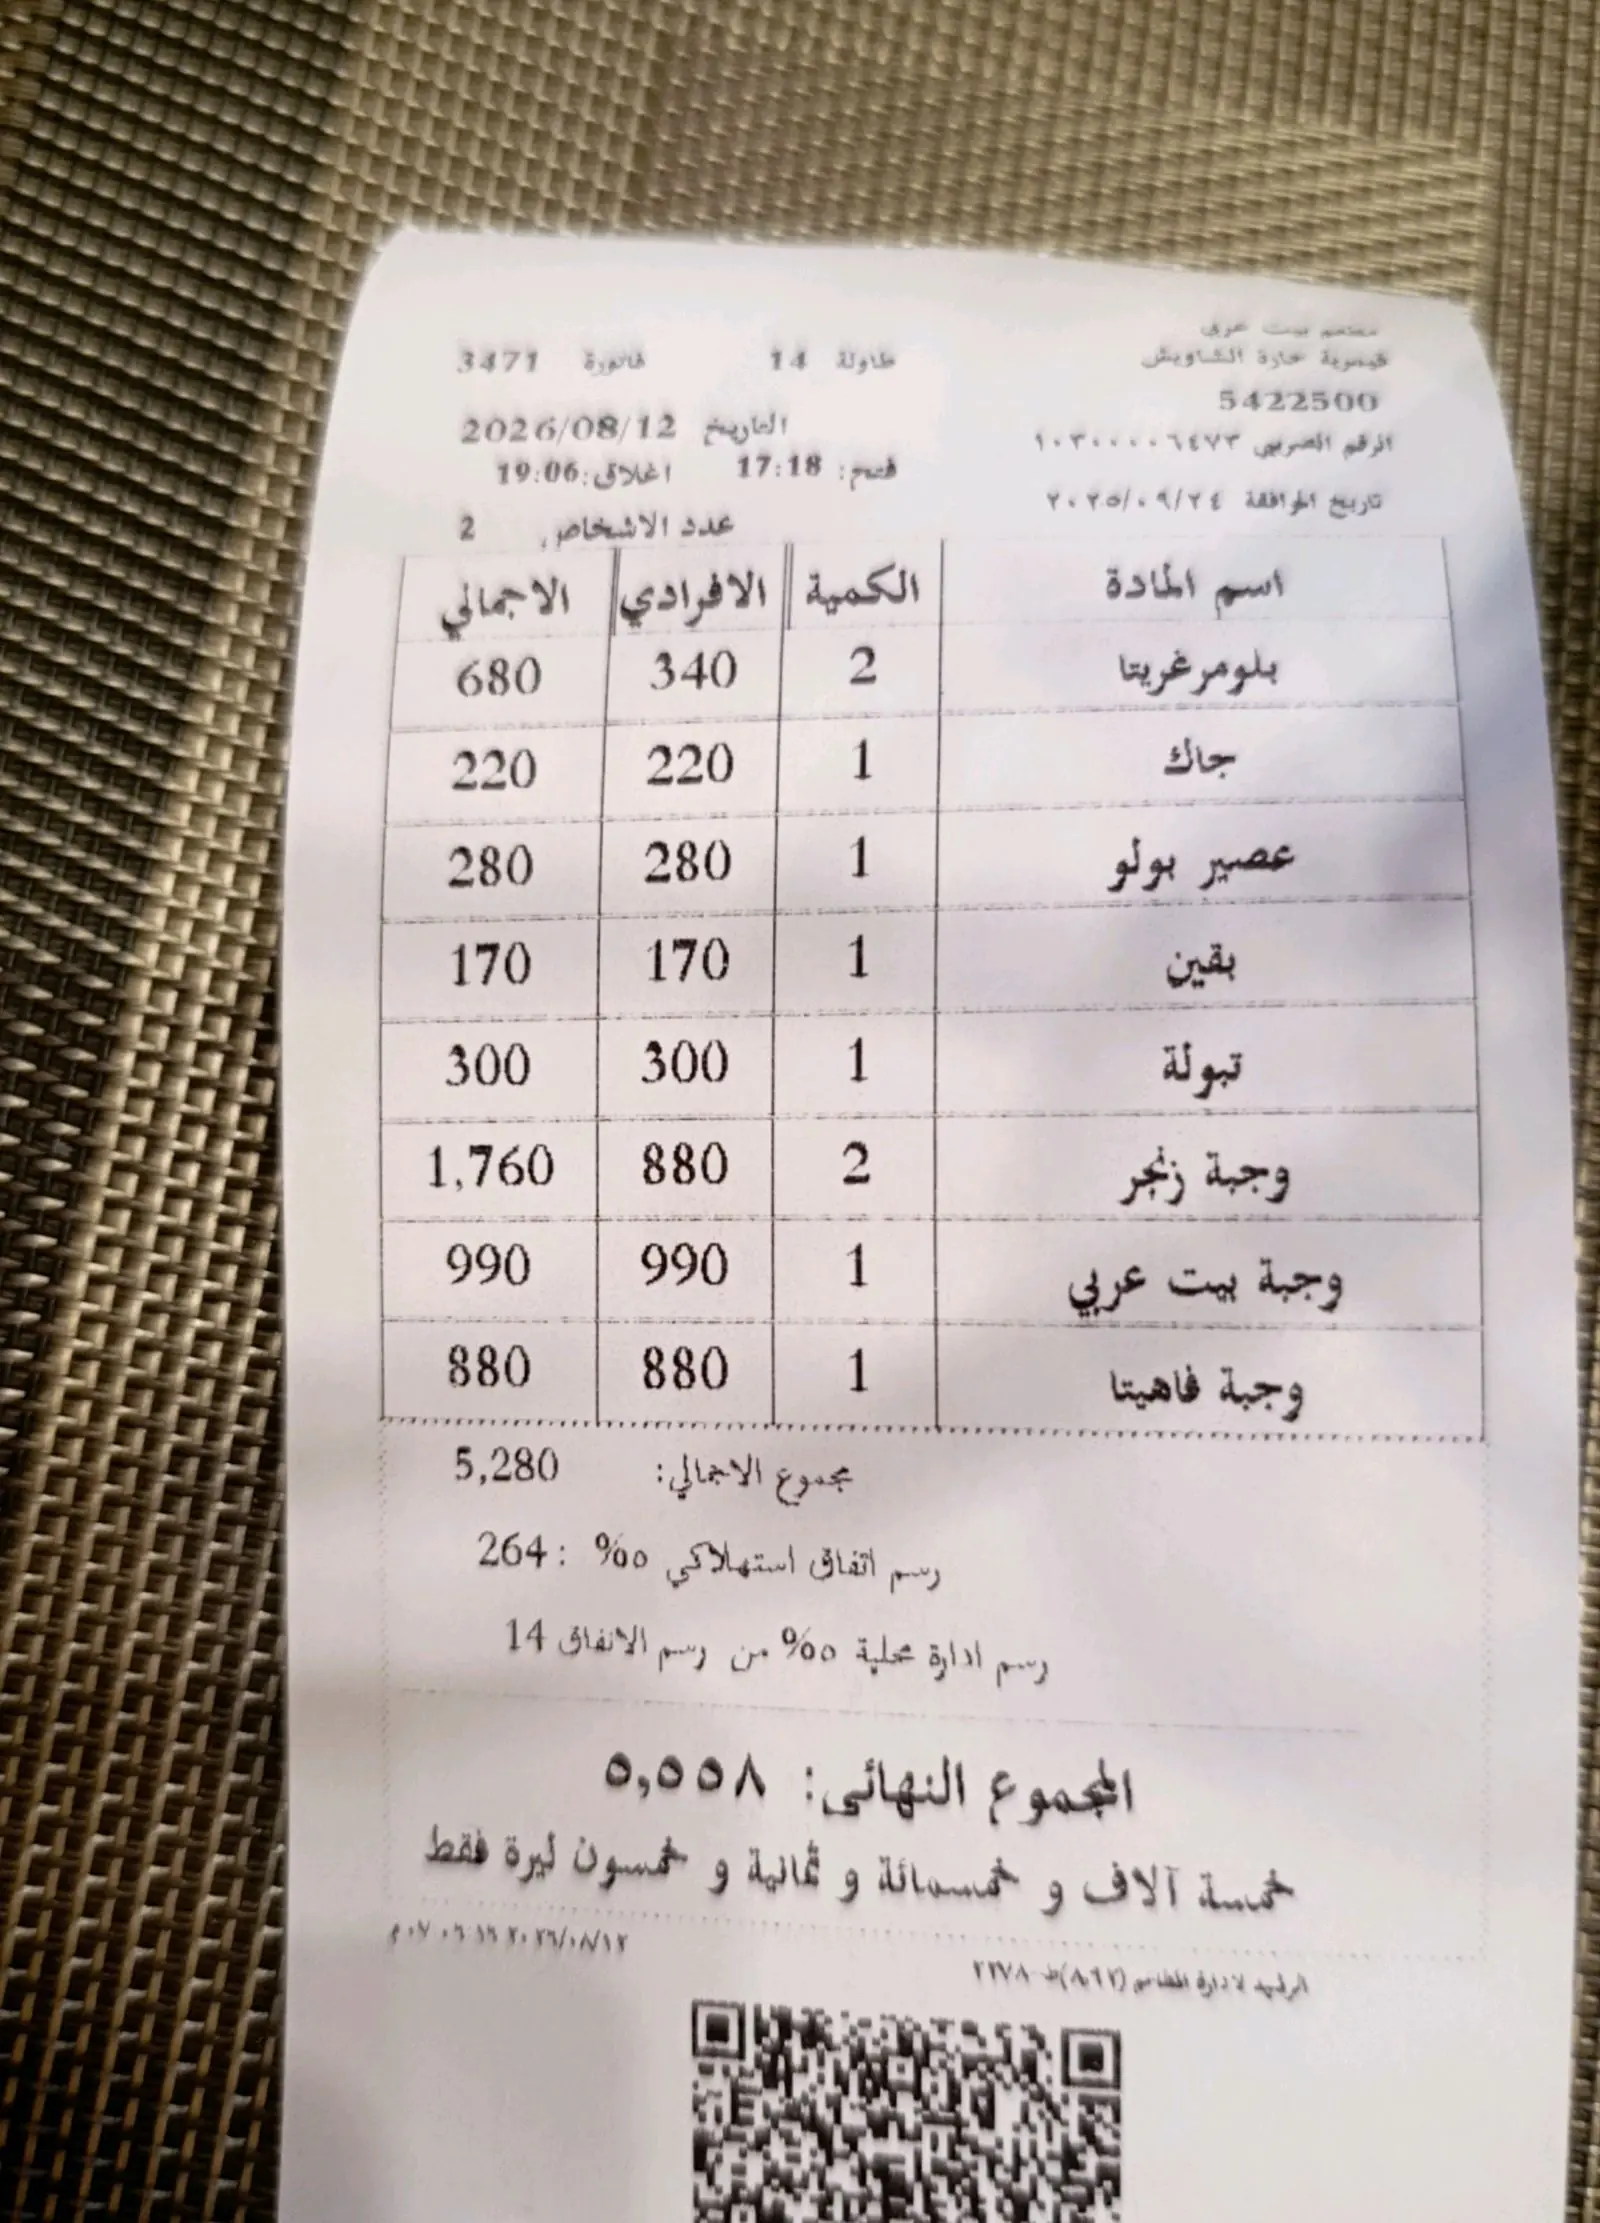 مطعم بيت عربي
قيمرية حارة الشاويش
5422500
الرقم الضريبي ١٠٣٠٠٠٠٦٤٧٣
تاريخ الموافقة ٢٠٢٥/٠٩/٢٤
طاولة 14 فاتورة 3471
التاريخ 2026/08/12
فتح: 17:18 اغلاق: 19:06
عدد الاشخاص 2
اسم المادة الكمية الافرادي الاجمالي
بلومرغريتا 2 340 680
جاك 1 220 220
عصير بولو 1 280 280
بقين 1 170 170
تبولة 1 300 300
وجبة زنجر 2 880 1,760
وجبة بيت عربي 1 990 990
وجبة فاهيتا 1 880 880
مجموع الاجمالي: 5,280
رسم اتفاق استهلاكي ٥٥% : 264
رسم ادارة محلية ٥٥% من رسم الانفاق 14
المجموع النهائى: ٥,٥٥٨
خمسة آلاف و خمسمائة و ثمانية و خمسون ليرة فقط
٢٠٢٦/٠٨/١٢
لادارة المطاعم